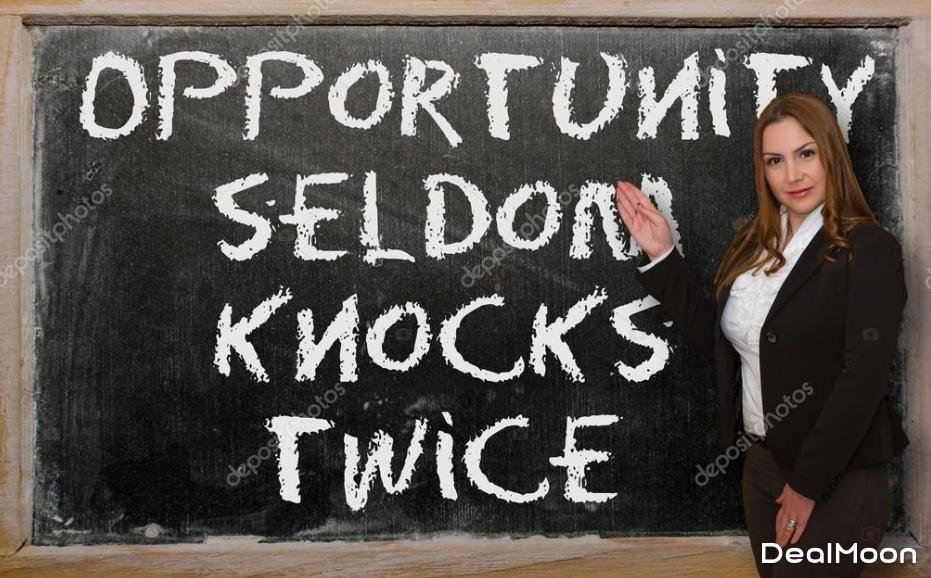 OPPORTUNITY
SELDOM
KNOCKS
TWICE
depositphotos
depositphotos
depositphotos
depositphotos
depositphotos
depositphotos
depositphotos
DealMoon